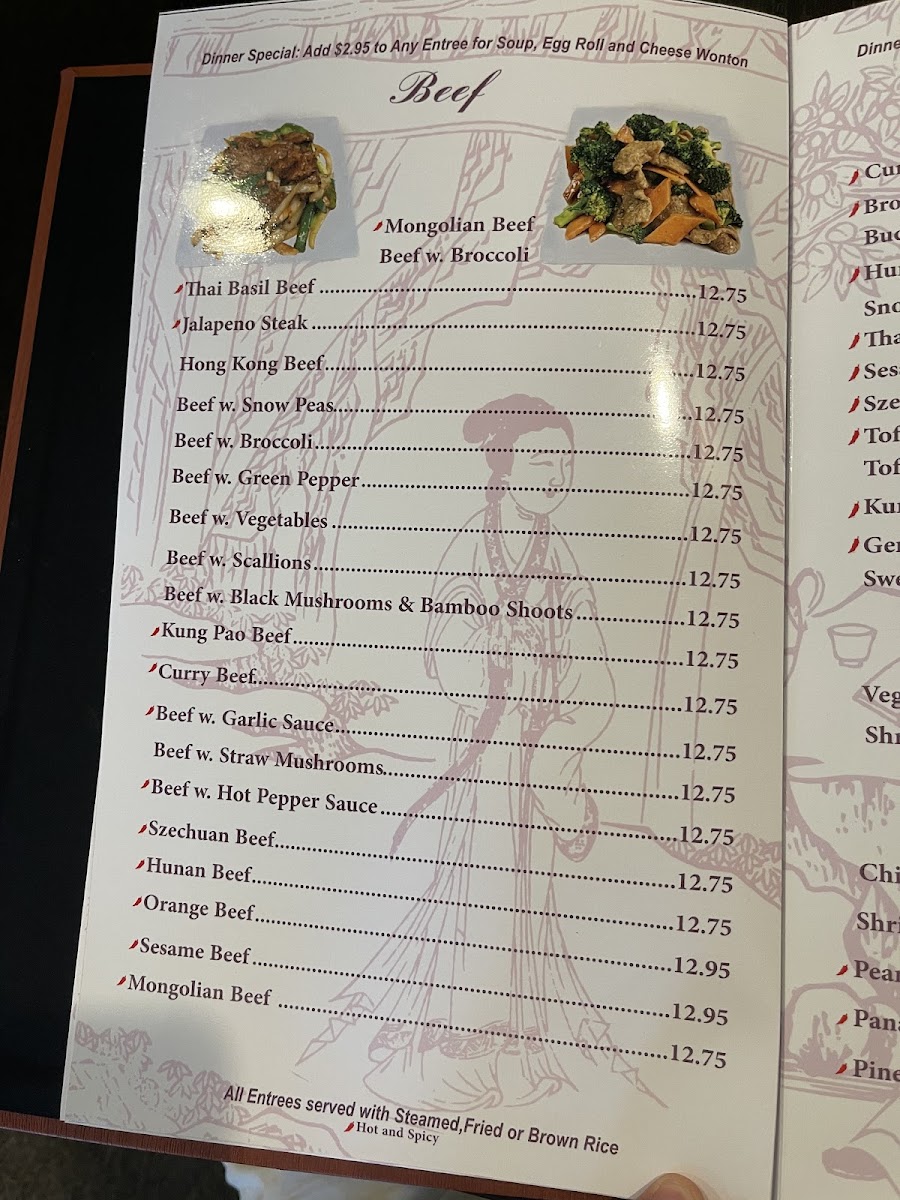 Dinner Special: Add $2.95 to Any Entree for Soup, Egg Roll and Cheese Wonton
Beef
Mongolian Beef
Beef w. Broccoli
Thai Basil Beef ...12.75
Jalapeno Steak ...12.75
Hong Kong Beef...12.75
Beef w. Snow Peas...12.75
Beef w. Broccoli...12.75
Beef w. Green Pepper...12.75
Beef w. Vegetables ...12.75
Beef w. Scallions...12.75
Beef w. Black Mushrooms & Bamboo Shoots...12.75
Kung Pao Beef...12.75
Curry Beef...12.75
Beef w. Garlic Sauce...12.75
Beef w. Straw Mushrooms...12.75
Beef w. Hot Pepper Sauce...12.75
Szechuan Beef...12.75
Hunan Beef...12.75
Orange Beef...12.95
Sesame Beef...12.95
Mongolian Beef ...12.75
All Entrees served with Steamed,Fried or Brown Rice
Hot and Spicy